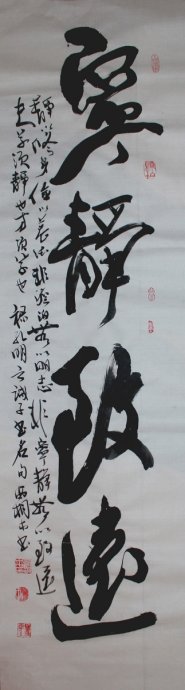 寧靜致遠
靜以修身儉以養德非澹泊無以明志非寧靜無以致遠
夫學須靜也才須學也 孔明之誡子書名句 書